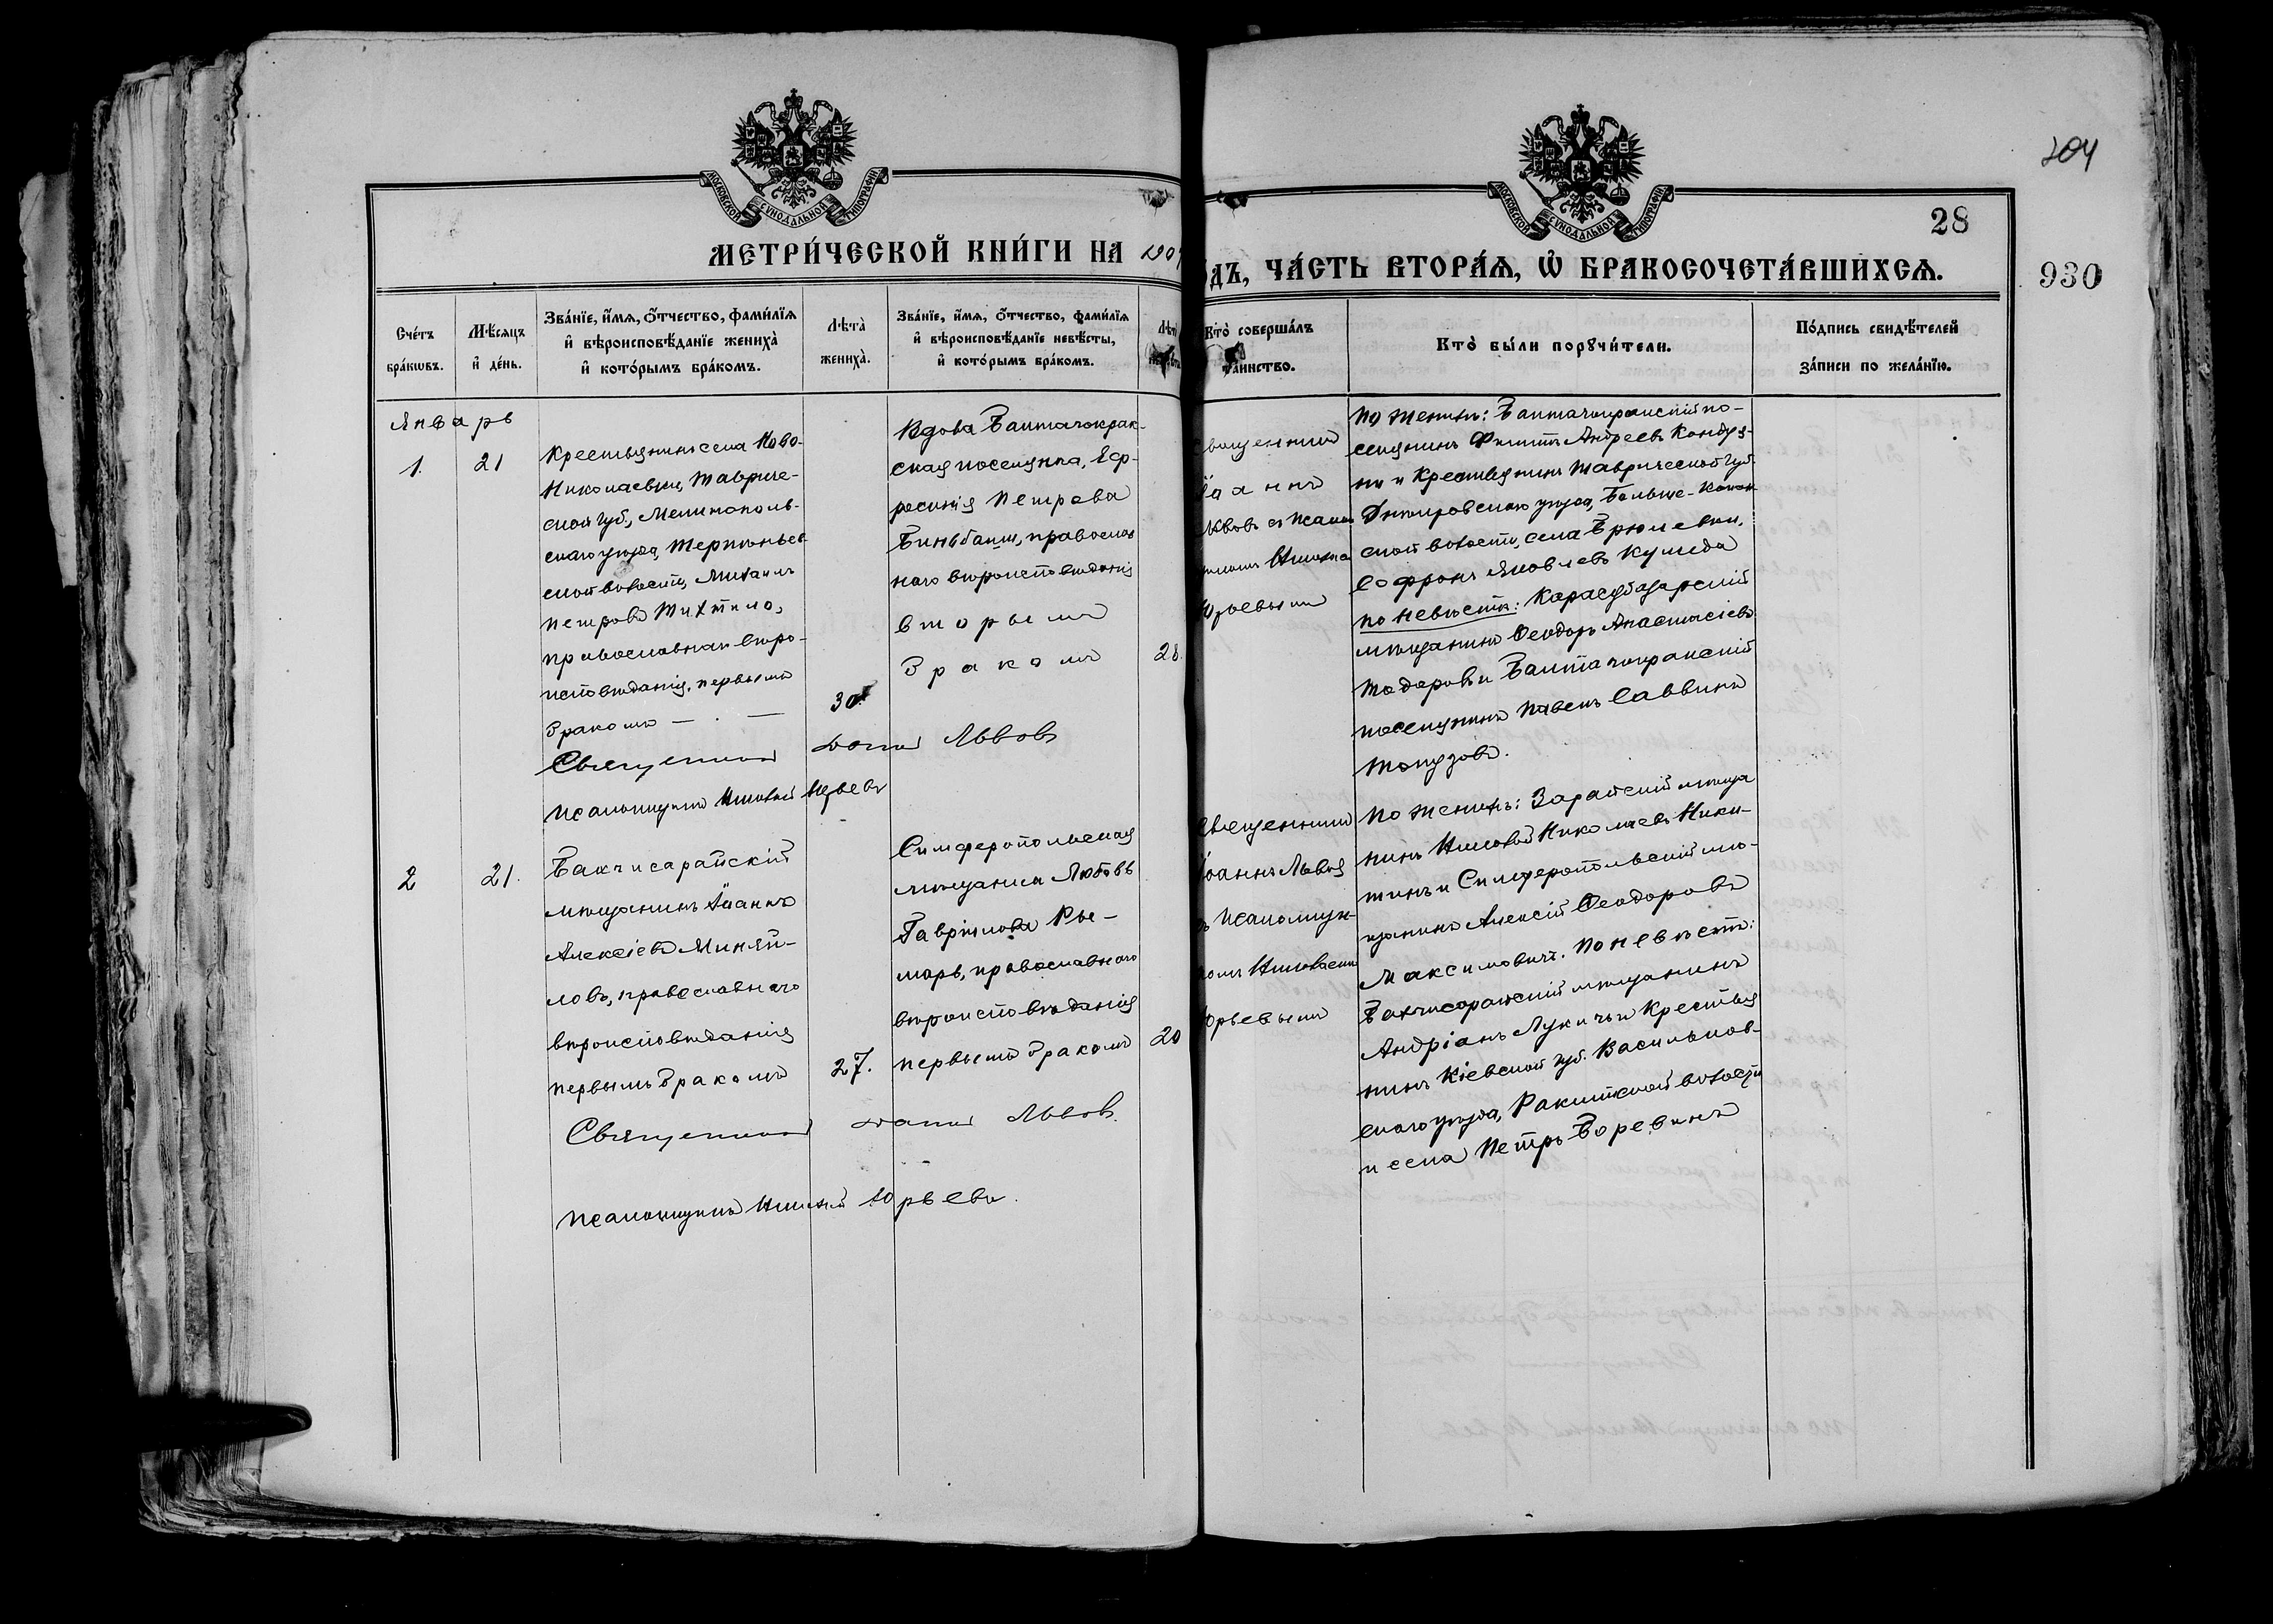 204
28
930
МОСКОВСКОЙ СѴНОДАЛЬНОЙ ТИПОГРАФІИ
МОСКОВСКОЙ СѴНОДАЛЬНОЙ ТИПОГРАФІИ
МЕТРИ́ЧЕСКОЙ КНИ́ГИ НА 190
ДЪ, ЧА́СТЬ ВТОРА́Я, Ѡ҆ БРАКОСОЧЕТА́ВШИХСЯ.
Сче́тъ бра́кѡвъ.
Мѣ́сяцъ и҆ де́нь.
Зва́нїе, и҆́мя, ѻ҆́тчество, фами́лїя и҆ вѣроисповѣ́данїе жениха̀ и҆ кото́рымъ бра́комъ.
Лѣта̀ жениха̀.
Зва́нїе, и҆́мя, ѻ҆́тчество, фами́лїя и҆ вѣроисповѣ́данїе невѣ́сты, и҆ кото́рымъ бра́комъ.
Кто̀ соверша́лъ таинство.
Кто̀ бы́ли порꙋчи́тели.
По́дпись свидѣ́телей за́писи по жела́нїю.
Январь
1.
21
Крестьянинъ села Ново-
Николаевки, Тавриче-
ской губ., Мелитополь-
скаго уѣзда, Терпѣньев
ской волости, Михаилъ
Петровъ Тихтило,
православнаго вѣро-
исповѣданія, первымъ
бракомъ
30
Вдова Балтачокрак-
ская поселянка, Ев-
росинія Петрова
Биньбаши, православ
наго вѣроисповѣданія
вторымъ
бракомъ
28.
Священникъ
Іоаннъ
Львовъ съ псалом
щикомъ Николае
Юрьевымъ
По женихѣ: Балтачокракскій по-
селянинъ Филиппъ Андреевъ
и Крестьянинъ Таврической Губ.
Днѣпровскаго уѣзда, Больше-
ской волости, села Брилевки,
Софронъ Яковлевъ Кулиеда
по невѣстѣ: Карасубазарскій
мѣщанинъ Ѳеодоръ Анастасіевъ
Тодоровъ и Балтачокракскій
поселянинъ Павелъ Саввинъ
Топузовъ.
Священникъ Іоаннъ Львовъ
Псаломщикъ Николай Юрьевъ
2
21.
Бахчисарайскій
мѣщанинъ Іоаннъ
Алексіевъ Миняй-
ловъ, православнаго
вѣроисповѣданія
первымъ бракомъ
27.
Симферопольская
мѣщанка Любовь
Гаврилова Ры-
марь, православнаго
вѣроисповѣданія
первымъ бракомъ
20
Священникъ
Іоаннъ Львов
ъ псаломщи-
комъ Николаемъ
Юрьевымъ
По женихѣ: Зарайскій мѣща
нинъ Николай Николаевъ Ники-
тинъ и Симферопольскій мѣ-
щанинъ Алексій Ѳеодоровъ
Максимовичъ. По невѣстѣ:
Бахчисарайскій мѣщанинъ
Андріанъ Лукичъ и Крестья
нинъ Кіевской губ. Васильков-
скаго уѣзда, Ракитской волости
и села Петръ Боревинъ
Священникъ Іоаннъ Львовъ.
Псаломщикъ Николай Юрьевъ.